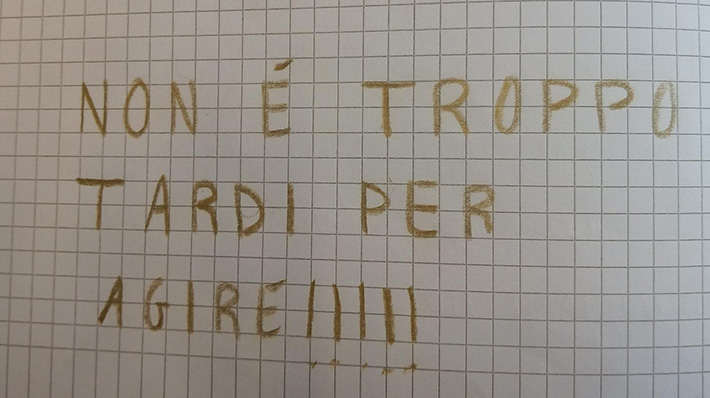 NON É TROPPO
TARDI PER
AGIRE!!!!!